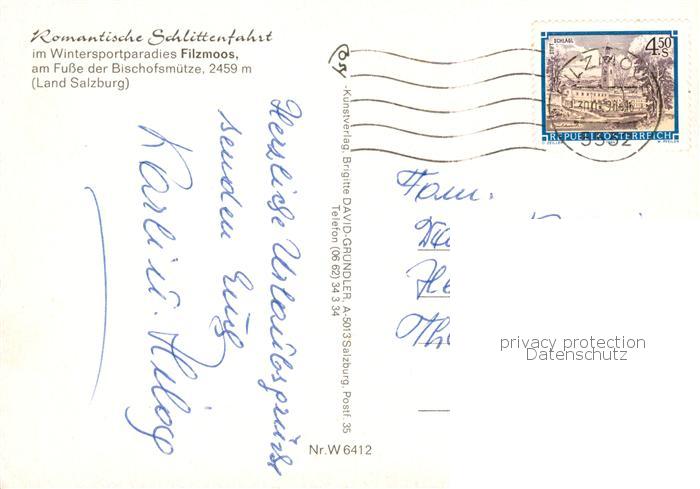 Romantische Schlittenfahrt
im Wintersportparadies Filzmoos,
am Fuße der Bischofsmütze, 2459 m
(Land Salzburg)
Herzliche Urlaubsgrüße
senden Euch
Karli u. Helga
-Kunstverlag, Brigitte DAVID-GRÜNDLER, A-5013 Salzburg, Postf. 35
Telefon (06 62) 34 3 34
Nr. W 6412
STIFT SCHLÄGL
4.50 S
REPUBLIK ÖSTERREICH
FILZMOOS
5532
Fam.
privacy protection
Datenschutz